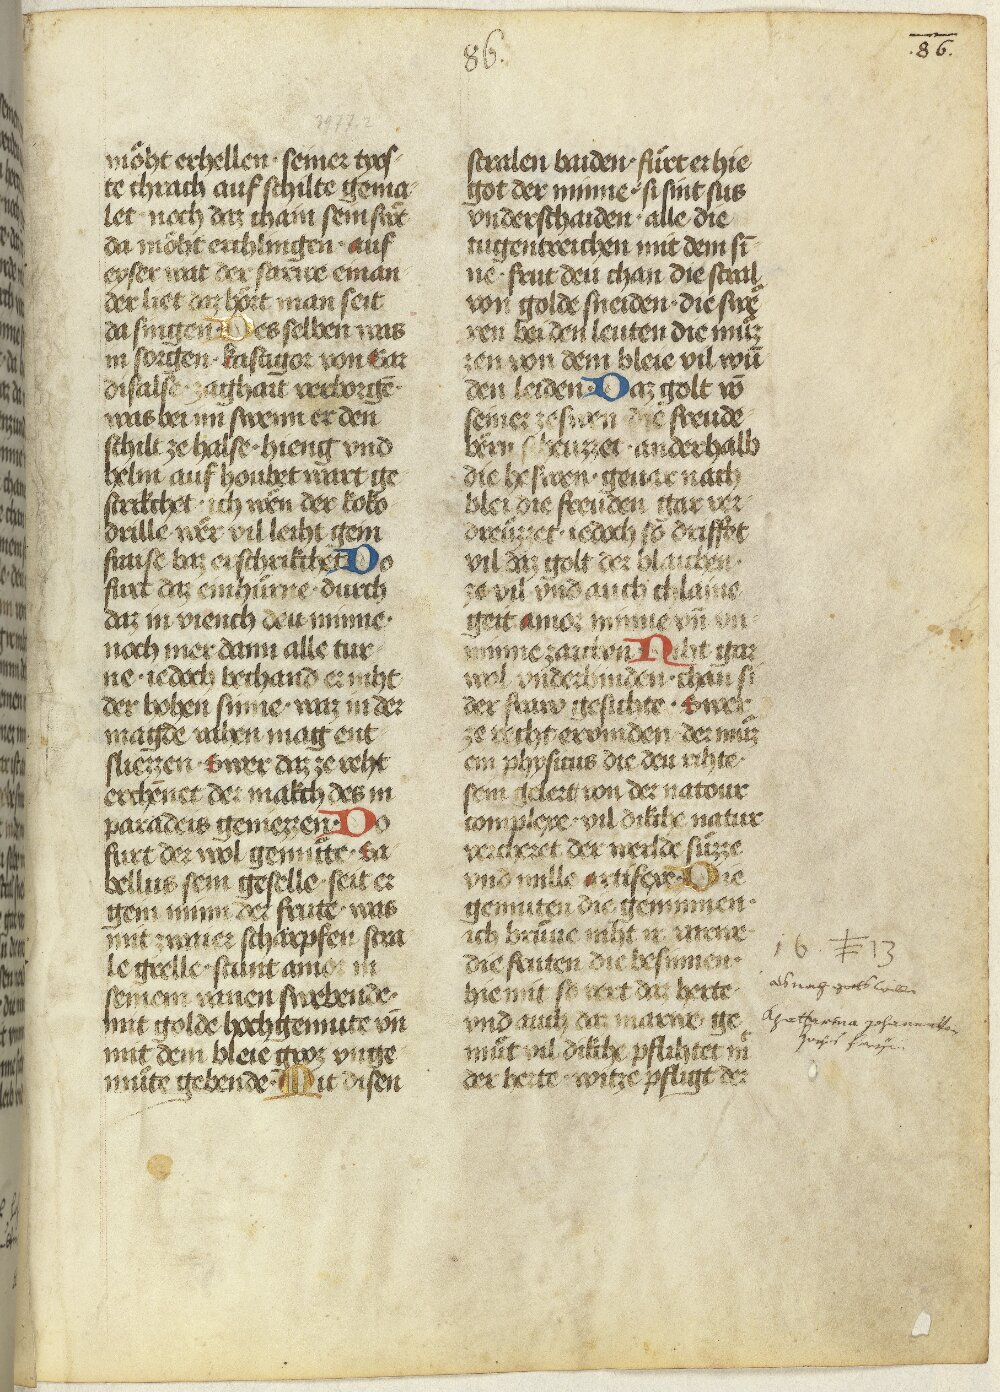 86.
.86.
3977.2
möht erhellen · seiner tyos-
te chrach auf schilte gema-
let · noch daz chain sein swe͛t
da möht erchlingen · auf
eyser wat der sarwe eman
der liet daz hört man seit
da singen · Des selben was
in sorgen · kastigor von Gar
disalse · zaghait verborgē ·
was bei im swenn er den
schilt ze halse · hieng vnd
helm auf houbet wart ge
strikchet · ich wen der koko
drille · wer vil leiht gem
saise daz erschrikchet Do
furt daz einhürne · durch
daz in viench deu minne ·
noch mer dann alle tur-
ne · iedoch bechand er niht
der hohen sinne · waz in der
magde raben mag ent
sliezzen · Swer daz ze reht
erchennet der makch des in
paradeis geniezzen · Do
furt der wol gemüte · ka-
bellius sein geselle · seit er
gern minn der frute · was
mit zwaier schärpfen stra
le grelle · stunt amor in
seinem vanen swebende ·
mit golde hochgemute vn̄
mit dem bleie groz vnge-
müte gebende · Mit disen
stralen baiden · fürt er hie
got der minne · si sint sus
vnderschaiden · alle die
tugentreichen mit dem si-
ne · frut deu chan die stral
von golde sneiden · die swe͛
ren bei den leuten die müz
zen von dem bleie vil wū
den leiden · Daz golt vō
seiner zeswen die freude
bern scheuzzet · anderhalb
die beswen · gevar nach
blei die freuden gar ver-
dreüzzet · iedoch so driffet
vil daz golt der blauben ·
ze vil vnd auch chlaine
geit amor minne vn̄ vn-
minne rauben Niht gar
wol vnderbinden · chan si
der frawe gesihte · Swer
ze recht ervinden · der müz
ein physicus die deu rihte ·
sein gelert von der natour
complexe · vil dikche natur
vercheret der werlde süzze
vnd mille artifexe · Die
gemuten die geminnen ·
ich brüue niht ir varwe ·
die fruten die besinnen ·
hie mit so vert daz herte ·
vnd auch daz marwe · ge
müt vil dikche pflihtet in
der herte · witze pfligt der
16 ‡ 13
Chattarina Johannetten